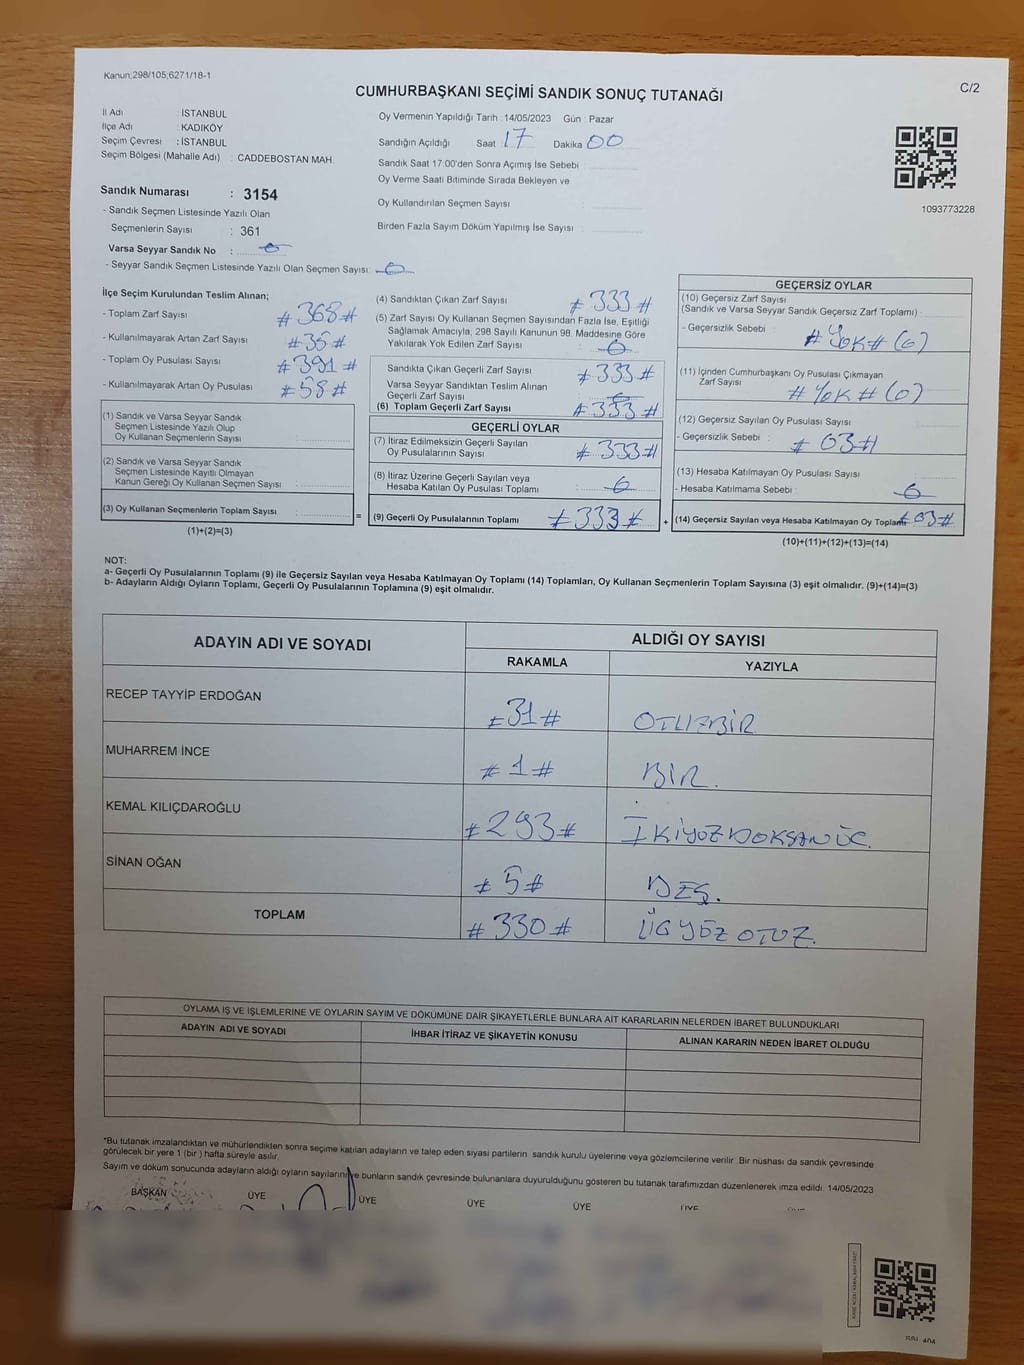 Kanun;298/105;6271/18-1
C/2
CUMHURBAŞKANI SEÇİMİ SANDIK SONUÇ TUTANAĞI
İl Adı : İSTANBUL
İlçe Adı : KADIKÖY
Seçim Çevresi : İSTANBUL
Seçim Bölgesi (Mahalle Adı) : CADDEBOSTAN MAH.
Sandık Numarası : 3154
- Sandık Seçmen Listesinde Yazılı Olan
Seçmenlerin Sayısı : 361
Varsa Seyyar Sandık No : 0
- Seyyar Sandık Seçmen Listesinde Yazılı Olan Seçmen Sayısı: 0
Oy Vermenin Yapıldığı Tarih : 14/05/2023 Gün : Pazar
Sandığın Açıldığı Saat 17 Dakika 00
Sandık Saat 17:00'den Sonra Açımış İse Sebebi :
Oy Verme Saati Bitiminde Sırada Bekleyen ve
Oy Kullandırılan Seçmen Sayısı :
Birden Fazla Sayım Döküm Yapılmış İse Sayısı :
1093773228
İlçe Seçim Kurulundan Teslim Alınan;
- Toplam Zarf Sayısı # 368 #
- Kullanılmayarak Artan Zarf Sayısı # 35 #
- Toplam Oy Pusulası Sayısı # 391 #
- Kullanılmayarak Artan Oy Pusulası # 58 #
(1) Sandık ve Varsa Seyyar Sandık
Seçmen Listesinde Yazılı Olup
Oy Kullanan Seçmenlerin Sayısı :
(2) Sandık ve Varsa Seyyar Sandık
Seçmen Listesinde Kayıtlı Olmayan
Kanun Gereği Oy Kullanan Seçmen Sayısı :
(3) Oy Kullanan Seçmenlerin Toplam Sayısı :
(1)+(2)=(3)
=
(4) Sandıktan Çıkan Zarf Sayısı # 333 #
(5) Zarf Sayısı Oy Kullanan Seçmen Sayısından Fazla İse, Eşitliği
Sağlamak Amacıyla; 298 Sayılı Kanunun 98. Maddesine Göre
Yakılarak Yok Edilen Zarf Sayısı : 0
Sandıkta Çıkan Geçerli Zarf Sayısı : # 333 #
Varsa Seyyar Sandıktan Teslim Alınan
Geçerli Zarf Sayısı : 0
(6) Toplam Geçerli Zarf Sayısı # 333 #
GEÇERLİ OYLAR
(7) İtiraz Edilmeksizin Geçerli Sayılan
Oy Pusulalarının Sayısı # 333 #
(8) İtiraz Üzerine Geçerli Sayılan veya
Hesaba Katılan Oy Pusulası Toplamı : 0
(9) Geçerli Oy Pusulalarının Toplamı # 333 #
+
GEÇERSİZ OYLAR
(10) Geçersiz Zarf Sayısı
(Sandık ve Varsa Seyyar Sandık Geçersiz Zarf Toplamı) :
- Geçersizlik Sebebi : # YOK # (0)
(11) İçinden Cumhurbaşkanı Oy Pusulası Çıkmayan
Zarf Sayısı # YOK # (0)
(12) Geçersiz Sayılan Oy Pusulası Sayısı
- Geçersizlik Sebebi : # 03 #
(13) Hesaba Katılmayan Oy Pusulası Sayısı
- Hesaba Katılmama Sebebi : 0
(14) Geçersiz Sayılan veya Hesaba Katılmayan Oy Toplamı # 03 #
(10)+(11)+(12)+(13)=(14)
NOT:
a- Geçerli Oy Pusulalarının Toplamı (9) ile Geçersiz Sayılan veya Hesaba Katılmayan Oy Toplamı (14) Toplamları, Oy Kullanan Seçmenlerin Toplam Sayısına (3) eşit olmalıdır. (9)+(14)=(3)
b- Adayların Aldığı Oyların Toplamı, Geçerli Oy Pusulalarının Toplamına (9) eşit olmalıdır.
ADAYIN ADI VE SOYADI ALDIĞI OY SAYISI
RAKAMLA YAZIYLA
RECEP TAYYİP ERDOĞAN # 31 # OTUZBİR
MUHARREM İNCE # 1 # BİR.
KEMAL KILIÇDAROĞLU # 293 # İKİYÜZDOKSANÜÇ.
SİNAN OĞAN # 5 # BEŞ.
TOPLAM # 330 # ÜÇYÜZ OTUZ.
OYLAMA İŞ VE İŞLEMLERİNE VE OYLARIN SAYIM VE DÖKÜMÜNE DAİR ŞİKAYETLERLE BUNLARA AİT KARARLARIN NELERDEN İBARET BULUNDUKLARI
ADAYIN ADI VE SOYADI İHBAR İTİRAZ VE ŞİKAYETİN KONUSU ALINAN KARARIN NEDEN İBARET OLDUĞU
*Bu tutanak imzalandıktan ve mühürlendikten sonra seçime katılan adayların ve talep eden siyasi partilerin sandık kurulu üyelerine veya gözlemcilerine verilir. Bir nüshası da sandık çevresinde
görülecek bir yere 1 (bir ) hafta süreyle asılır.
Sayım ve döküm sonucunda adayların aldığı oyların sayılarını ve bunların sandık çevresinde bulunanlara duyurulduğunu gösteren bu tutanak tarafımızdan düzenlenerek imza edildi. 14/05/2023
BAŞKAN ÜYE ÜYE ÜYE ÜYE ÜYE